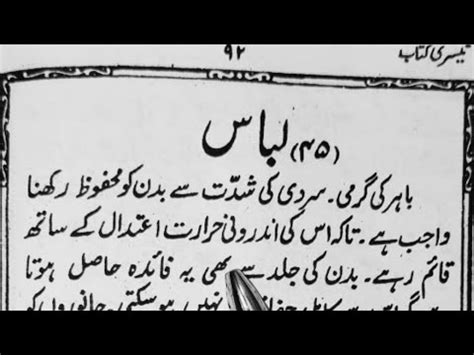 تیسری کتاب
۹۲
(۴۵) لباس
باہر کی گرمی۔ سردی کی شدّت سے بدن کو محفوظ رکھنا
واجب ہے۔ تاکہ اس کی اندرونی حرارت اعتدال کے ساتھ
قائم رہے۔ بدن کی جلد سے بھی یہ فائدہ حاصل ہوتا
نہیں ہو سکتی۔ جانوروں کو